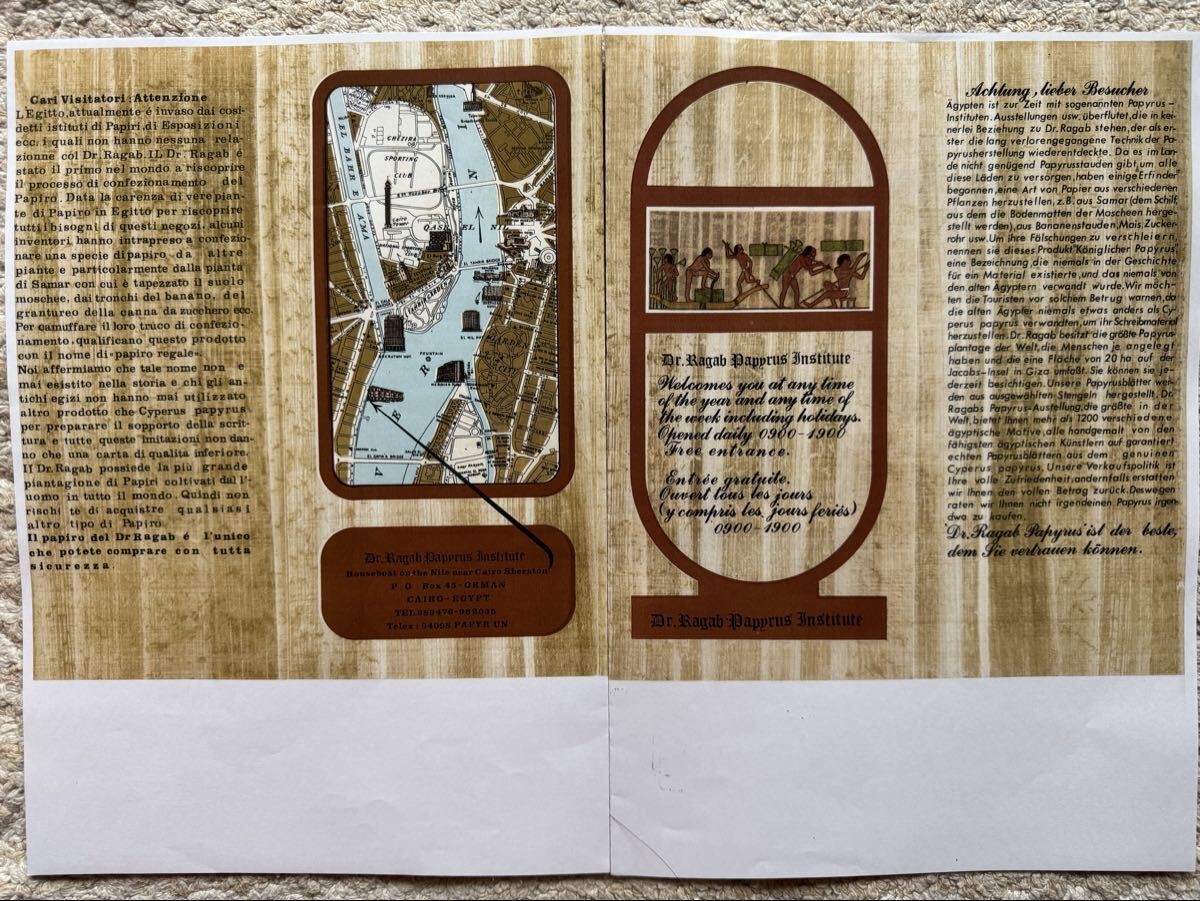 Cari Visitatori: Attenzione
L'Egitto, attualmente é invaso dai cosi-
detti istituti di Papiri, di Esposizioni
ecc. i quali non hanno nessuna rela-
zione col Dr. Ragab. IL Dr. Ragab é
stato il primo nel mondo a riscoprire
il processo di confezionamento del
Papiro. Data la carenza di vere pian-
te di Papiro in Egitto per riscoprire
tutti i bisogni di questi negozi, alcuni
inventori hanno intrapreso a confezio-
nare una specie di papiro da altre
piante e particolarmente dalla pianta
di Samar con cui è tapezzato il suolo
moschee, dai tronchi del banano, del
grantureo della canna da zucchero ecc.
Per camuffare il loro truco di confezio-
namento, qualificano questo prodotto
con il nome di «papiro regale».
Noi affermiamo che tale nome non e
mai esistito nella storia e chi gli an-
tichi egizi non hanno mai utilizzato
altro prodotto che Cyperus papyrus
per preparare il sopporto della scrit-
tura e tutte queste imitazioni non dan-
no che una carta di qualita inferiore.
Il Dr. Ragab possiede la più grande
piantagione di Papiri coltivati dal l'
uomo in tutto il mondo. Quindi non
rischi te di acquistre qualsiasi
altro tipo di Papiro.
Il papiro del Dr Ragab é l'unico
che potete comprare con tutta
sicurezza.
EL BAHR EL AMA
GHEZIRA
SPORTING
CLUB
Cairo Tower
QASR EL NIL
EL TAHRIR BRIDGE
FOUNTAIN
GARDEN
CITY
Dr. Ragab Papyrus Institute
Houseboat on the Nile near Cairo Sheraton
P. O. Box 45 - ORMAN
CAIRO - EGYPT
TEL 989476 - 982035
Telex : 94098 PAPYR UN
Dr. Ragab Papyrus Institute
Welcomes you at any time
of the year and any time of
the week including holidays.
Opened daily 0900 - 1900
Free entrance.
Entrée gratuite.
Ouvert tous les jours
(y compris les jours feriés)
0900 - 1900
Dr. Ragab Papyrus Institute
Achtung, lieber Besucher
Ägypten ist zur Zeit mit sogenannten Papyrus-
Instituten. Ausstellungen usw. überflutet, die in kei-
nerlei Beziehung zu Dr. Ragab stehen, der als er-
ster die lang verlorengegangene Technik der Pa-
pyrusherstellung wiederentdeckte. Da es im Lan-
de nicht genügend Papyrusstauden gibt, um alle
diese Läden zu versorgen, haben einige Erfinder
begonnen, eine Art von Papier aus verschiedenen
Pflanzen herzustellen, z.B. aus Samar (dem Schilf,
aus dem die Bodenmatten der Moscheen herge-
stellt werden), aus Bananenstauden, Mais, Zucker-
rohr usw. Um ihre Fälschungen zu verschleiern,
nennen sie dieses Produkt "Königlicher Papyrus",
eine Bezeichnung, die niemals in der Geschichte
für ein Material existierte, und das niemals von
den alten Ägyptern verwandt wurde. Wir möch-
ten die Touristen vor solchem Betrug warnen, da
die alten Ägypter niemals etwas anders als Cy-
perus papyrus verwandten, um ihr Schreibmaterial
herzustellen. Dr. Ragab besitzt die größte Papyrus-
plantage der Welt, die Menschen je angelegt
haben und die eine Fläche von 20 ha auf der
Jacobs-Insel in Giza umfaßt. Sie können sie je-
derzeit besichtigen. Unsere Papyrusblätter wer-
den aus ausgewählten Stengeln hergestellt. Dr.
Ragabs Papyrus-Austellung, die größte in der
Welt, bietet Ihnen mehr als 1200 verschiedene
ägyptische Motive, alle handgemalt von den
fähigsten ägyptischen Künstlern auf garantiert
echten Papyrusblättern aus dem genuinen
Cyperus papyrus. Unsere Verkaufspolitik ist
Ihre volle Zufriedenheit, andernfalls erstatten
wir Ihnen den vollen Betrag zurück. Deswegen
raten wir Ihnen nicht irgendeinen Papyrus irgen-
dwo zu kaufen.
Dr. Ragab Papyrus ist der beste,
dem Sie vertrauen können.